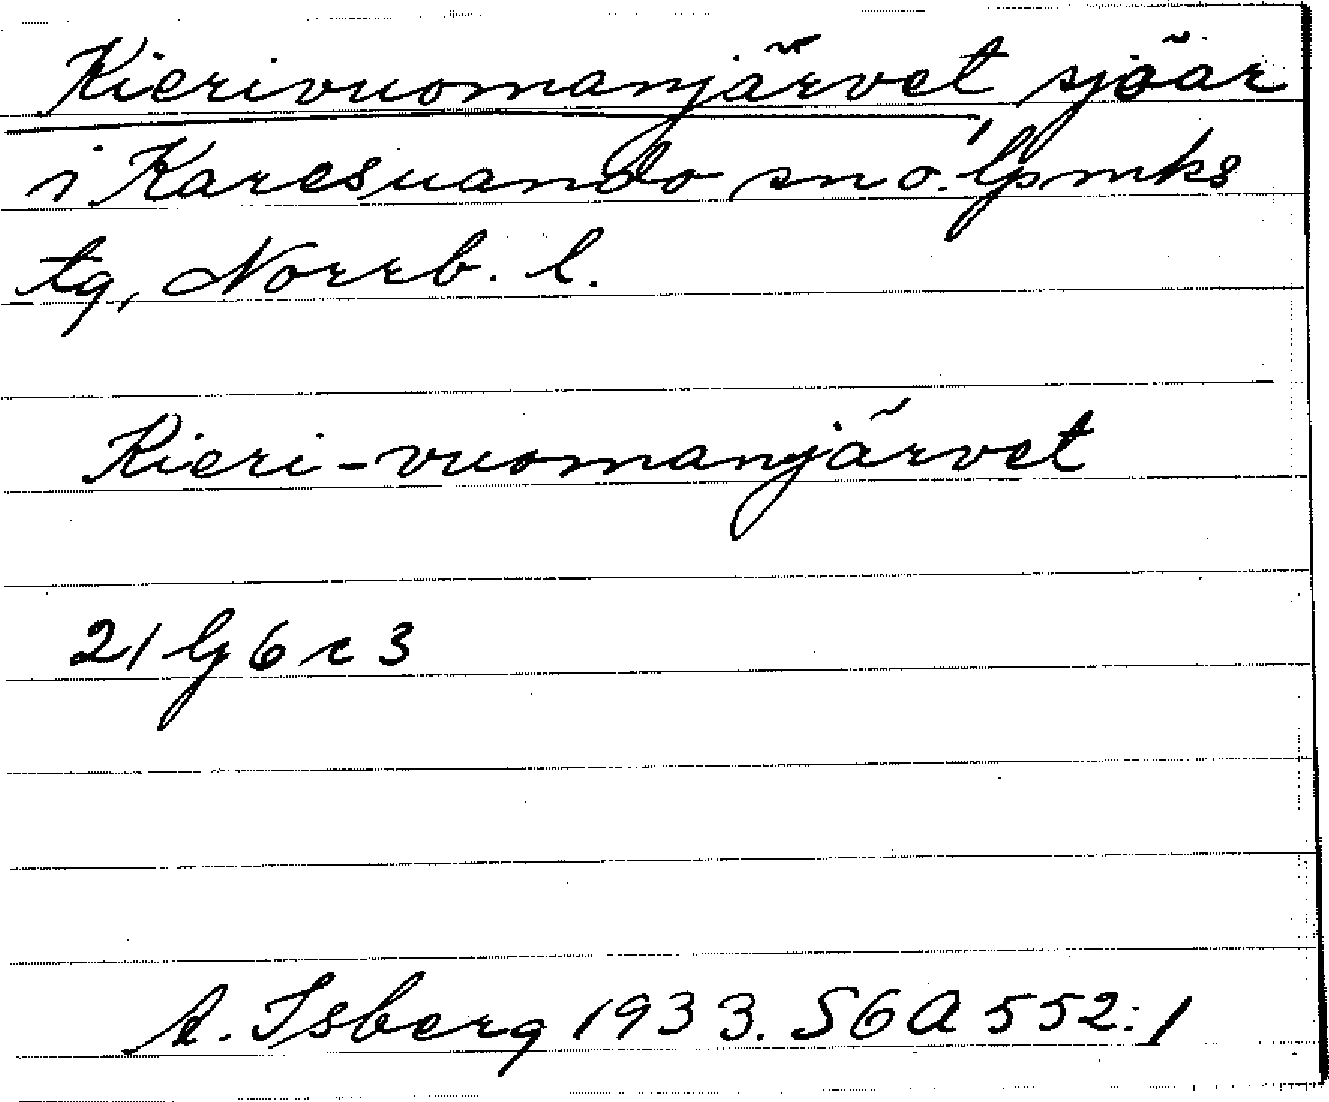 Kierivuomanjärvet, sjöar
i Karesuando sn o. lpmks
tg, Norrb. l.
Kieri-vuomanjärvet
21 G 6 c 3
A. Isberg 1933. SGA 552:1